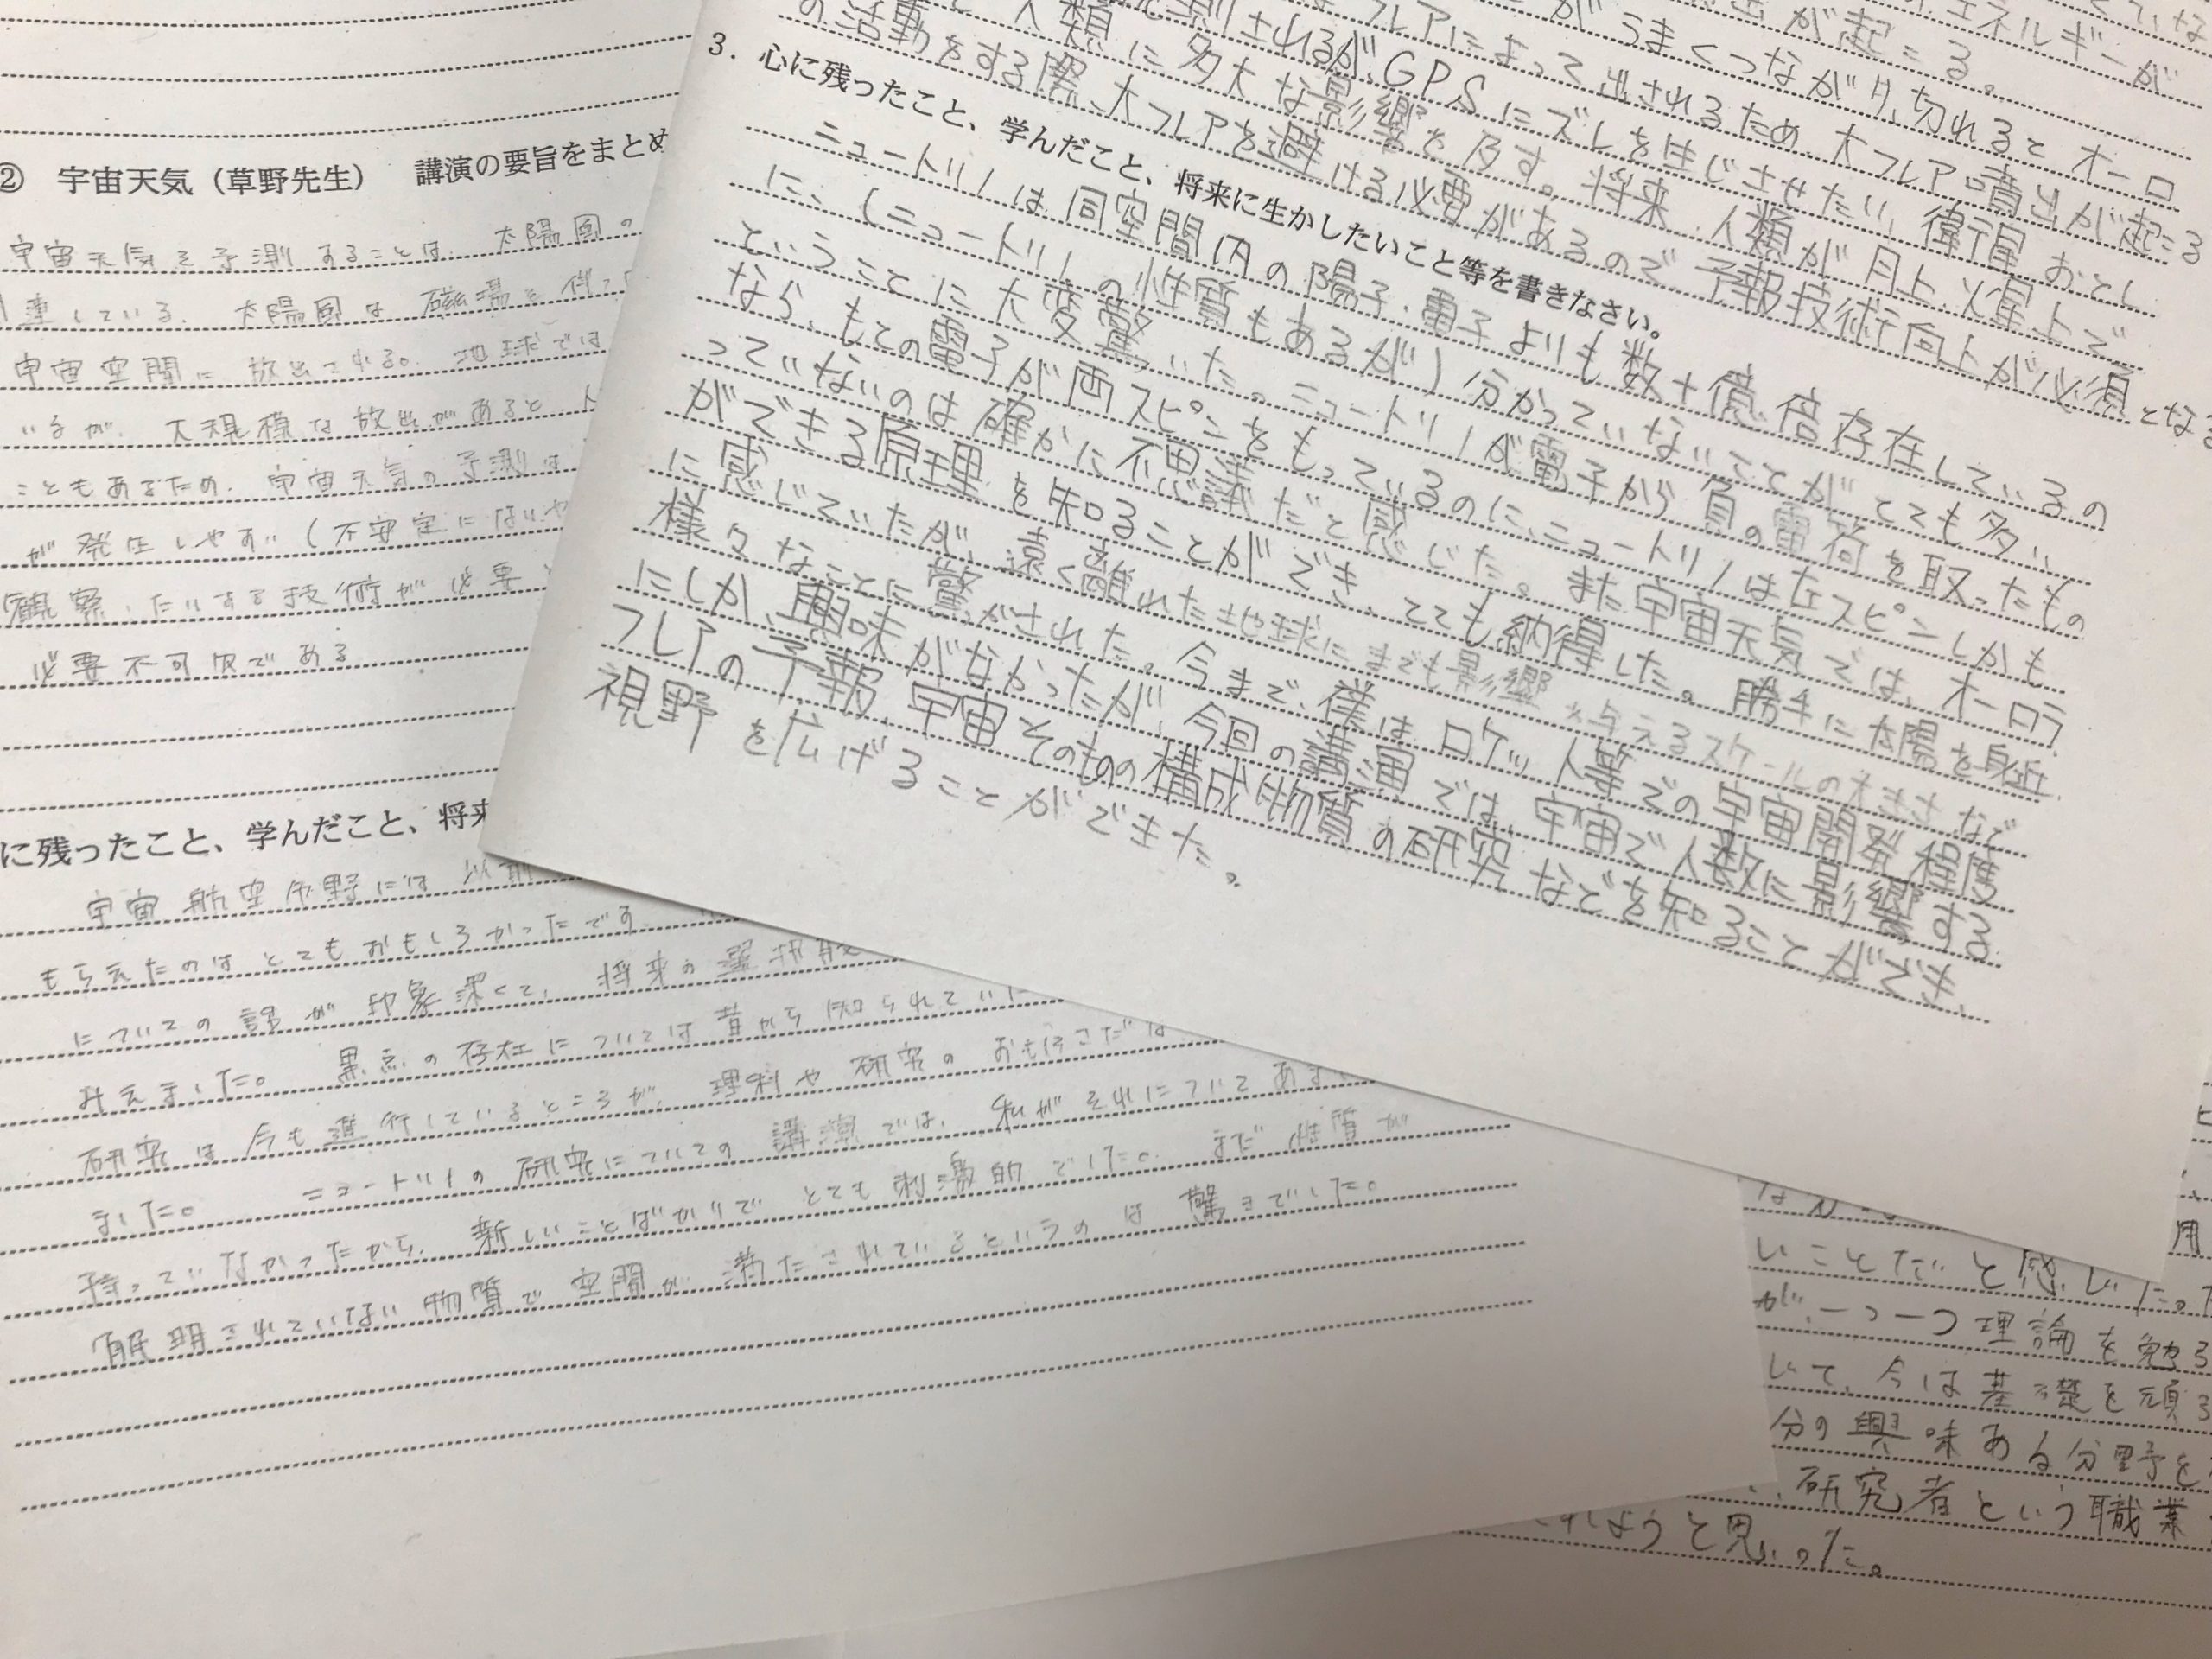 ② 宇宙天気（草野先生） 講演の要旨をまとめ
宇宙天気を予測することは、太陽風の
連している。太陽風は磁場を伴っ
宇宙空間に放出される。地球では
いるが、大規模な放出があると
こともあるため、宇宙天気の予測は
が発生しやすい（不安定に
観察、たいする技術が必要
必要不可欠である
に残ったこと、学んだこと、将来
宇宙航空分野には以前
もらえたのはとてもおもしろかったです。
についての話が印象深くて、将来の選択肢
みえました。 黒点の存在については昔から知られていた
研究は今も進行しているところが、理科や研究のおもしろさだ
ました。 ニュートリノの研究についての講演では、私がそれについてあま
持っていなかったから、新しいことばかりでとても刺激的でした。まだ性質が
解明されていない物質で空間が満たされているというのは驚きでした。
エネルギーが
が起こる。
がうまくつながり、切れると オーロ
フレアによって出されるため、大フレア噴出が起こる
測されるが、GPSにズレを生じさせたり、衛星おとし
人類に多大な影響を及す。将来、人類が月上、火星上で
の活動をする際、大フレアを避ける必要があるので予報技術向上が必須となる
3．心に残ったこと、学んだこと、将来に生かしたいこと等を書きなさい。
ニュートリノは同空間内の陽子、電子よりも数十億倍存在しているの
に、（ニュートリノの性質もあるが）分かっていないことがとても多い
ということに大変驚いた。ニュートリノが電子から負の電荷を取ったもの
なら、もての電子が両スピンをもっているのに、ニュートリノは左スピンしかも
っていないのは確かに不思議だと感じた。また宇宙天気では、オーロラ
ができる原理を知ることができ、とても納得した。勝手に太陽を身近
に感じていたが、遠く離れた地球にまでも影響を与えるスケールの大きさなど
様々なことに驚かされた。今まで、僕はロケッ人等での宇宙開発程度
にしか興味がなかったが、今回の講演では、宇宙で人数に影響する
フレアの予報、宇宙そのものの構成物質の研究などを知ることができ、
視野を広げることができた。
用
いことだと感じた。
が、一つ一つ理論を勉
じて、今は基礎を頑
分の興味ある分野を
研究者という職業
ようと思った。